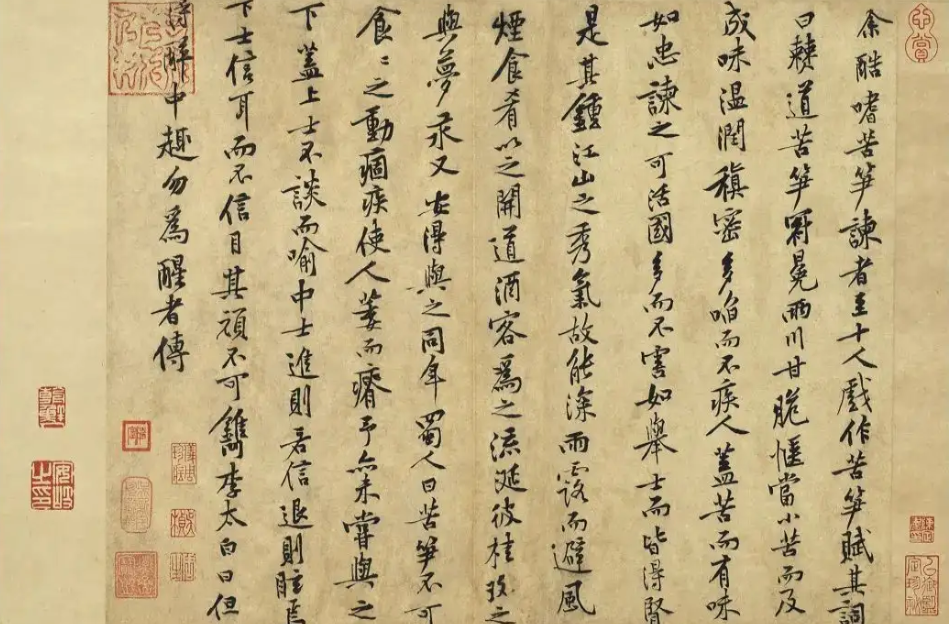 余酷嗜苦笋諫者至十人戲作苦笋賦其詞
曰僰道苦笋冠冕兩川甘脆愜當小苦而反
成味温潤稹密多啗而不疾人蓋苦而有味
如忠諫之可活國多而不害如舉士而皆得賢
是其鍾江山之秀氣故能深雨露而避風
煙食肴以之開道酒客爲之流涎彼桂玫之
與夢永又安得與之同年蜀人曰苦笋不可
食〻之動痼疾使人萎而瘠予亦未嘗與之
下蓋上士不談而喻中士進則若信退則眩焉
下士信耳而不信目其頑不可鐫李太白曰但
得醉中趣勿爲醒者傳